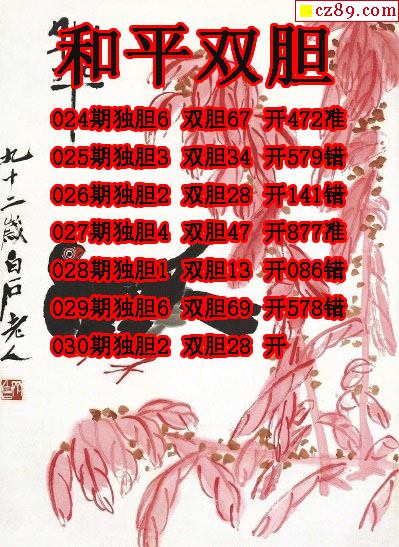 cz89.com
和平双胆
024期独胆6 双胆67 开472准
025期独胆3 双胆34 开579错
026期独胆2 双胆28 开141错
027期独胆4 双胆47 开877准
028期独胆1 双胆13 开086错
029期独胆6 双胆69 开578错
030期独胆2 双胆28 开
九十二岁白石老人